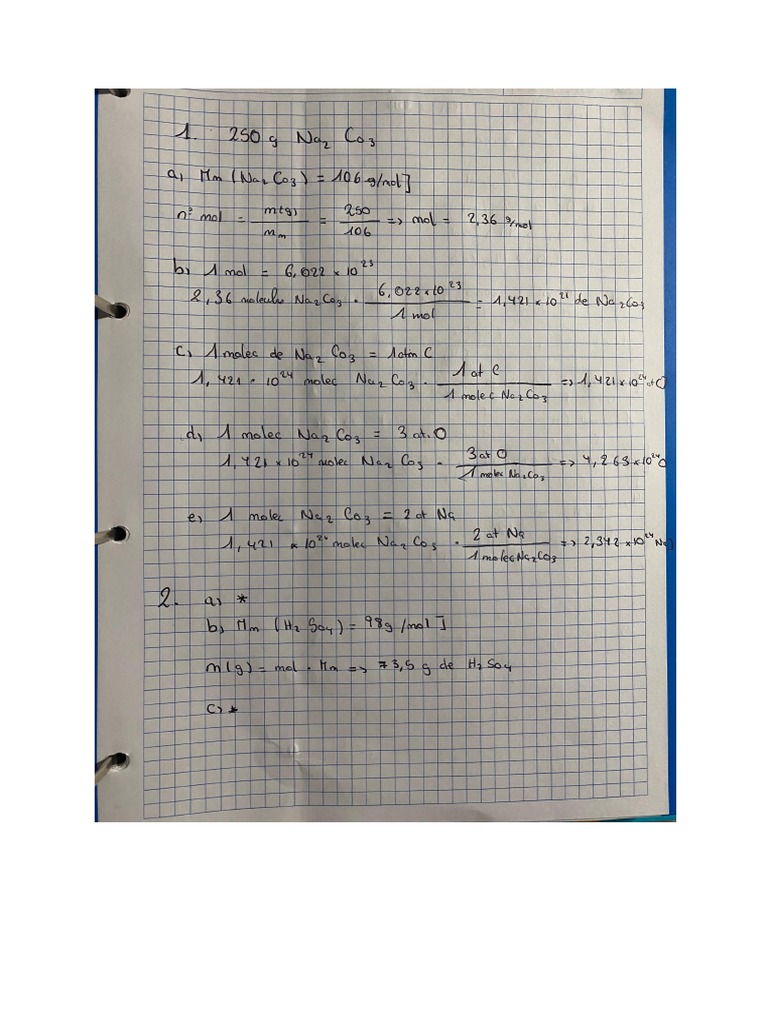 1. 250 g Na2 Co3
a) Mm (Na2 Co3) = 106 g/mol]
nº mol = m(g) / Mm = 250 / 106 => mol = 2,36 g/mol
b) 1 mol = 6,022 × 10^23
2,36 moleculas Na2Co3 · 6,022×10^23 / 1 mol = 1,421 × 10^24 de Na2Co3
c) 1 molec de Na2 Co3 = 1 atm C
1,421 · 10^24 molec Na2 Co3 · 1 at C / 1 molec Na2Co3 => 1,421×10^24 at C
d) 1 molec Na2 Co3 = 3 at. O
1,421 × 10^24 molec Na2 Co3 · 3 at O / 1 molec Na2Co3 => 4,263×10^24 O
e) 1 molec Na2 Co3 = 2 at Na
1,421 × 10^24 molec Na2 Co3 · 2 at Na / 1 molec Na2Co3 => 2,342 ×10^24 Na]
2. a) *
b) Mm (H2 So4) = 98g/mol]
m(g) = mol · Mm => 73,5 g de H2So4
c) *